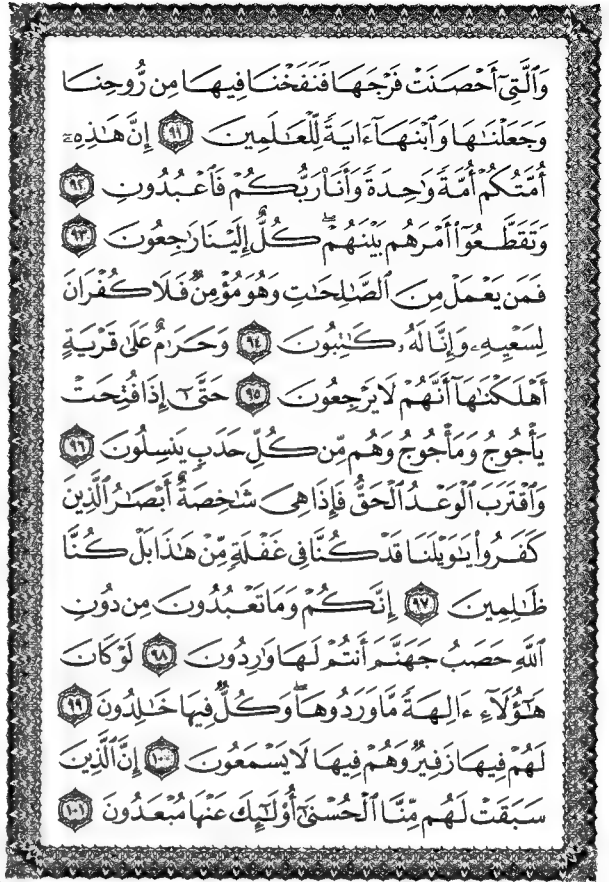 وَٱلَّتِىٓ أَحْصَنَتْ فَرْجَهَا فَنَفَخْنَا فِيهَا مِن رُّوحِنَا
وَجَعَلْنَـٰهَا وَٱبْنَهَآ ءَايَةً لِّلْعَـٰلَمِينَ ٩١ إِنَّ هَـٰذِهِۦٓ
أُمَّتُكُمْ أُمَّةً وَٰحِدَةً وَأَنَا۠ رَبُّكُمْ فَٱعْبُدُونِ ٩٢
وَتَقَطَّعُوٓا۟ أَمْرَهُم بَيْنَهُمْ ۖ كُلٌّ إِلَيْنَا رَٰجِعُونَ ٩٣
فَمَن يَعْمَلْ مِنَ ٱلصَّـٰلِحَـٰتِ وَهُوَ مُؤْمِنٌ فَلَا كُفْرَانَ
لِسَعْيِهِۦ وَإِنَّا لَهُۥ كَـٰتِبُونَ ٩٤ وَحَرَٰمٌ عَلَىٰ قَرْيَةٍ
أَهْلَكْنَـٰهَآ أَنَّهُمْ لَا يَرْجِعُونَ ٩٥ حَتَّىٰٓ إِذَا فُتِحَتْ
يَأْجُوجُ وَمَأْجُوجُ وَهُم مِّن كُلِّ حَدَبٍ يَنسِلُونَ ٩٦
وَٱقْتَرَبَ ٱلْوَعْدُ ٱلْحَقُّ فَإِذَا هِىَ شَـٰخِصَةٌ أَبْصَـٰرُ ٱلَّذِينَ
كَفَرُوا۟ يَـٰوَيْلَنَا قَدْ كُنَّا فِى غَفْلَةٍ مِّنْ هَـٰذَا بَلْ كُنَّا
ظَـٰلِمِينَ ٩٧ إِنَّكُمْ وَمَا تَعْبُدُونَ مِن دُونِ
ٱللَّهِ حَصَبُ جَهَنَّمَ أَنتُمْ لَهَا وَٰرِدُونَ ٩٨ لَوْ كَانَ
هَـٰٓؤُلَآءِ ءَالِهَةً مَّا وَرَدُوهَا ۖ وَكُلٌّ فِيهَا خَـٰلِدُونَ ٩٩
لَهُمْ فِيهَا زَفِيرٌ وَهُمْ فِيهَا لَا يَسْمَعُونَ ١٠٠ إِنَّ ٱلَّذِينَ
سَبَقَتْ لَهُم مِّنَّا ٱلْحُسْنَىٰٓ أُو۟لَـٰٓئِكَ عَنْهَا مُبْعَدُونَ ١٠١